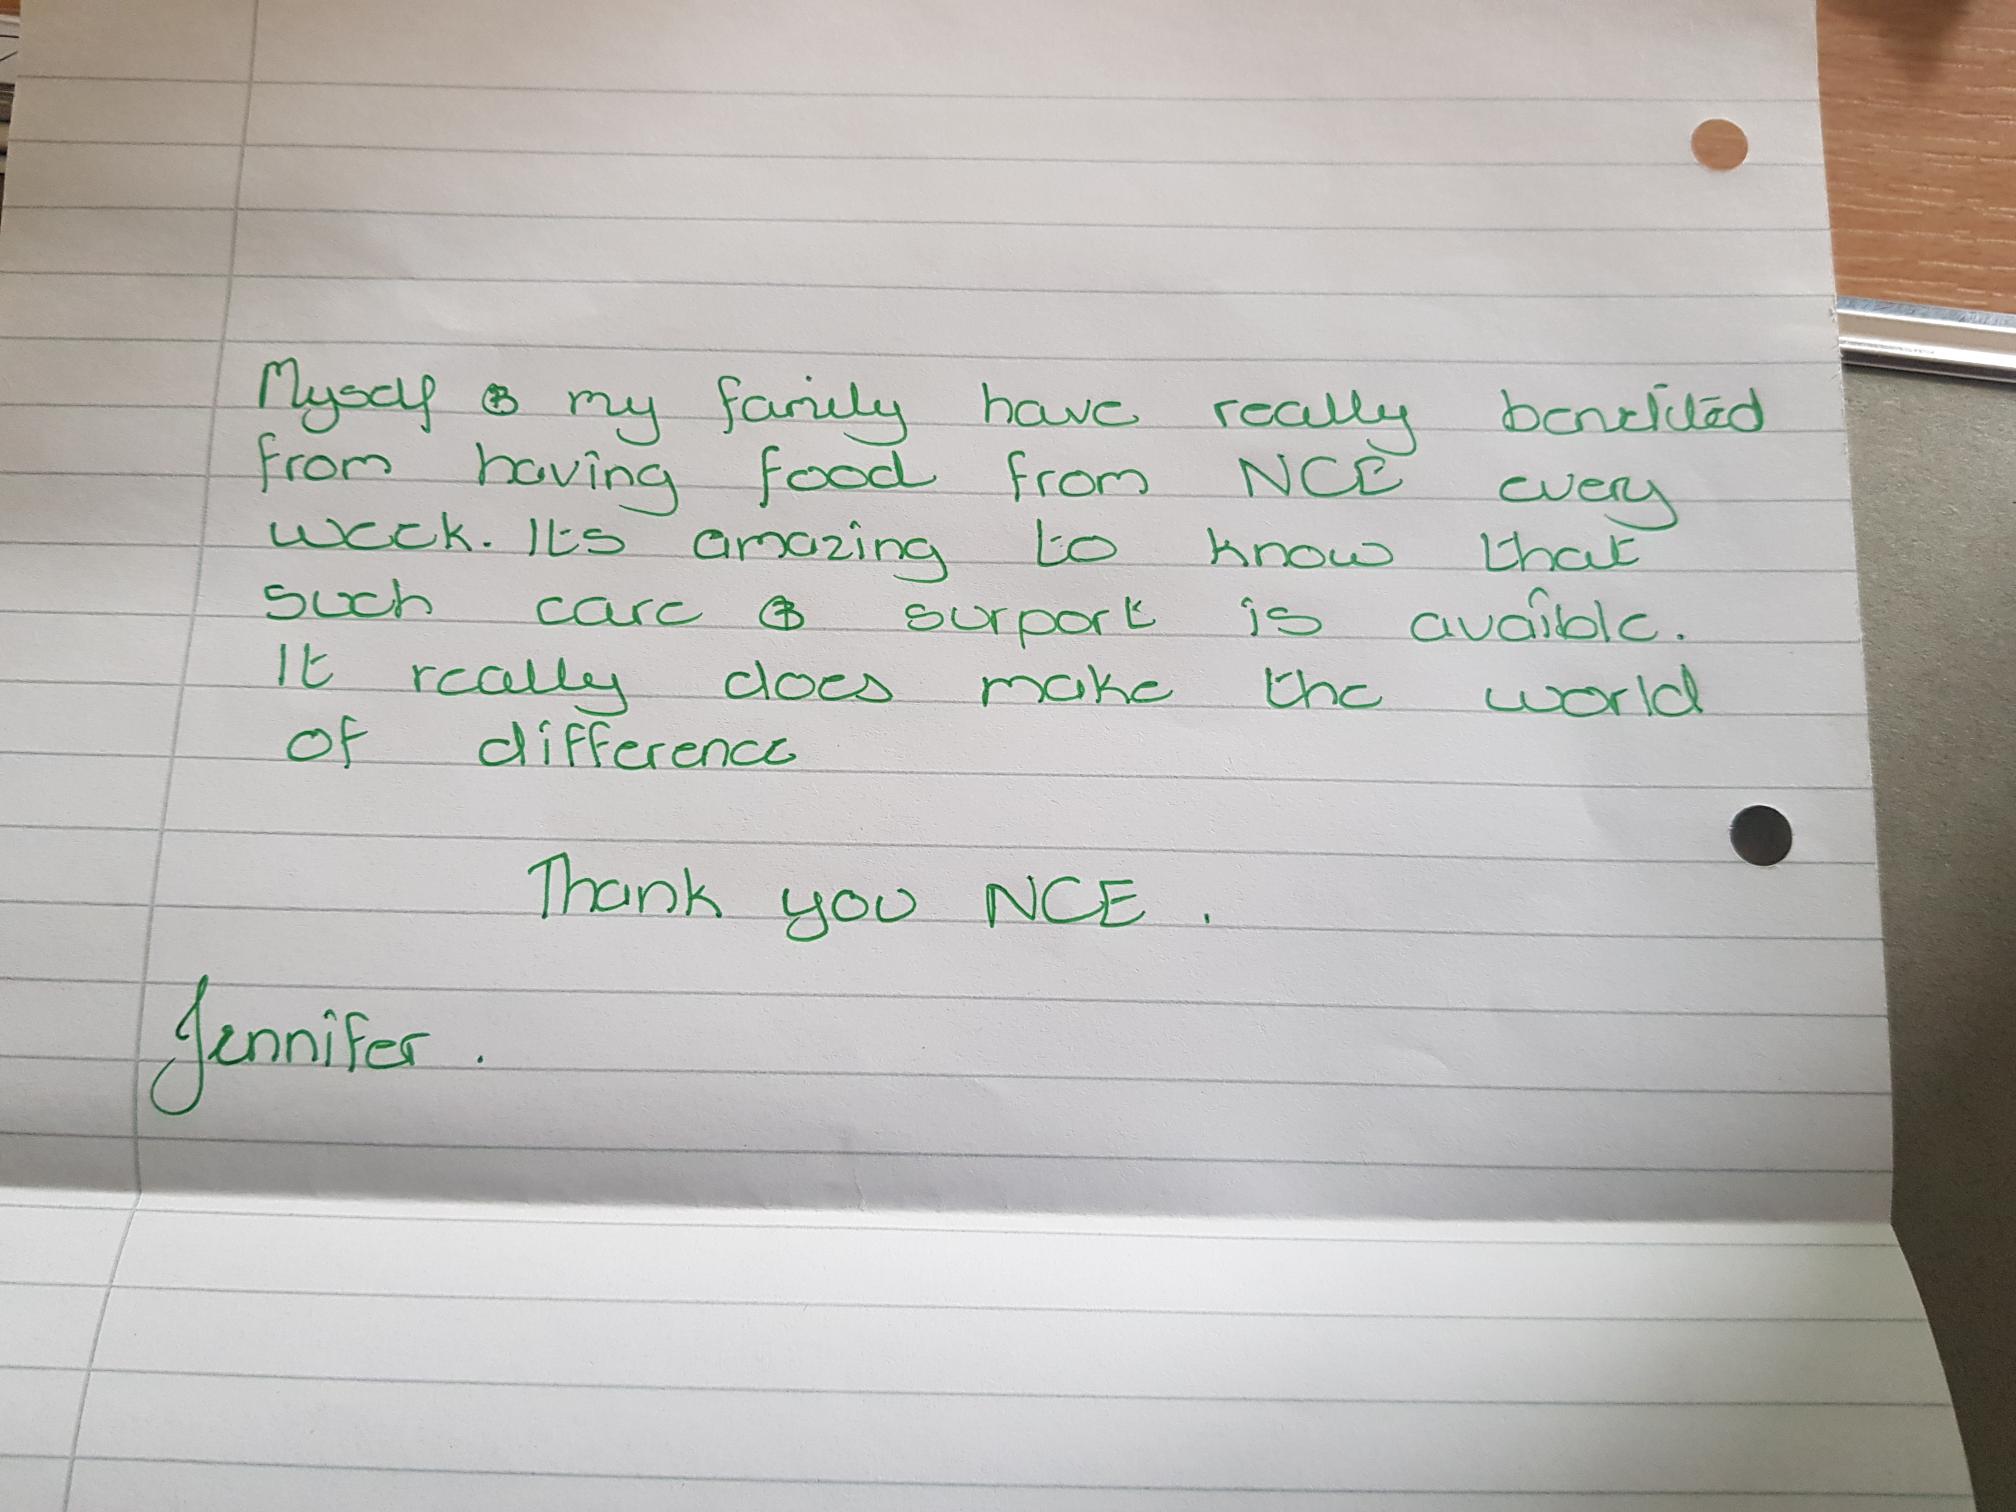 Myself & my family have really benefited
from having food from NCE every
week. Its amazing to know that
such care & surport is avaible.
It really does make the world
of difference
Thank you NCE.
Jennifer.